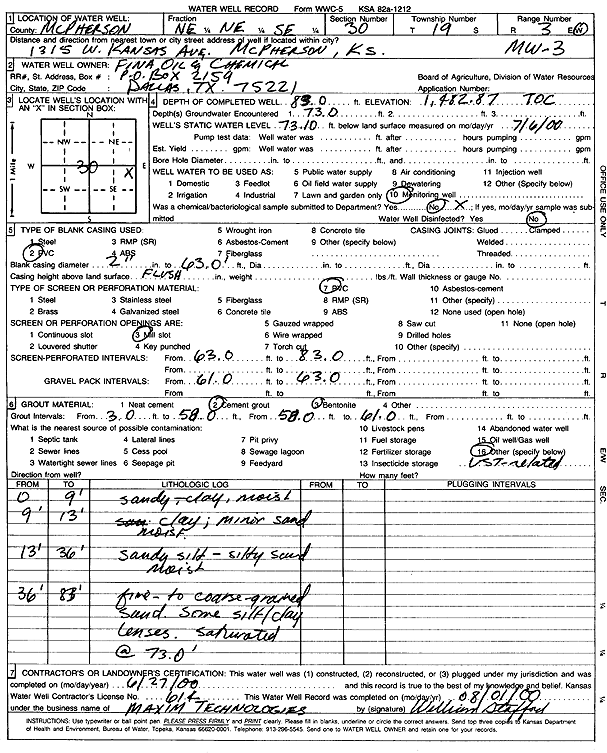 WATER WELL RECORD Form WWC-5 KSA 82a-1212
1 LOCATION OF WATER WELL: Fraction Section Number Township Number Range Number
County: McPHERSON NE ¼ NE ¼ SE ¼ 30 T 19 S R 3 E/W
Distance and direction from nearest town or city street address of well if located within city?
1315 W. KANSAS AVE. McPHERSON, KS. MW-3
2 WATER WELL OWNER: FINA OIL & CHEMICAL
RR#, St. Address, Box # : P.O. BOX 2159 Board of Agriculture, Division of Water Resources
City, State, ZIP Code : DALLAS, TX. 75221 Application Number:
3 LOCATE WELL'S LOCATION WITH AN "X" IN SECTION BOX:
N
NW NE
W 30 X E
SW SE
S
1 Mile
4 DEPTH OF COMPLETED WELL 83.0 ft. ELEVATION: 1,482.87 TOC
Depth(s) Groundwater Encountered 1. 73.0
WELL'S STATIC WATER LEVEL 73.10 ft. below land surface measured on mo/day/yr 7/6/00
Pump test data: Well water was ft. after hours pumping gpm
Est. Yield gpm: Well water was ft. after hours pumping gpm
Bore Hole Diameter in. to ft., and in. to ft.
WELL WATER TO BE USED AS: 5 Public water supply 8 Air conditioning 11 Injection well
1 Domestic 3 Feedlot 6 Oil field water supply 9 Dewatering 12 Other (Specify below)
2 Irrigation 4 Industrial 7 Lawn and garden only 10 Monitoring well
Was a chemical/bacteriological sample submitted to Department? Yes No X ; If yes, mo/day/yr sample was submitted
Water Well Disinfected? Yes No
5 TYPE OF BLANK CASING USED: 5 Wrought iron 8 Concrete tile CASING JOINTS: Glued Clamped
1 Steel 3 RMP (SR) 6 Asbestos-Cement 9 Other (specify below) Welded
2 PVC 4 ABS 7 Fiberglass Threaded
Blank casing diameter 2" in. to 63.0 ft., Dia in. to ft., Dia in. to ft.
Casing height above land surface FLUSH in., weight lbs./ft. Wall thickness or gauge No.
TYPE OF SCREEN OR PERFORATION MATERIAL: 7 PVC 10 Asbestos-cement
1 Steel 3 Stainless steel 5 Fiberglass 8 RMP (SR) 11 Other (specify)
2 Brass 4 Galvanized steel 6 Concrete tile 9 ABS 12 None used (open hole)
SCREEN OR PERFORATION OPENINGS ARE: 5 Gauzed wrapped 8 Saw cut 11 None (open hole)
1 Continuous slot 3 Mill slot 6 Wire wrapped 9 Drilled holes
2 Louvered shutter 4 Key punched 7 Torch cut 10 Other (specify)
SCREEN-PERFORATED INTERVALS: From 63.0 ft. to 83.0 ft., From ft. to ft.
From ft. to ft., From ft. to ft.
GRAVEL PACK INTERVALS: From 61.0 ft. to 63.0 ft., From ft. to ft.
From ft. to ft., From ft. to ft.
6 GROUT MATERIAL: 1 Neat cement 2 Cement grout 3 Bentonite 4 Other
Grout Intervals: From 3.0 ft. to 58.0 ft. From 58.0 ft. to 61.0 ft., From ft. to ft.
What is the nearest source of possible contamination: 10 Livestock pens 14 Abandoned water well
1 Septic tank 4 Lateral lines 7 Pit privy 11 Fuel storage 15 Oil well/Gas well
2 Sewer lines 5 Cess pool 8 Sewage lagoon 12 Fertilizer storage 16 Other (specify below)
3 Watertight sewer lines 6 Seepage pit 9 Feedyard 13 Insecticide storage UST-related
Direction from well? How many feet?
FROM TO LITHOLOGIC LOG FROM TO PLUGGING INTERVALS
0 9' sandy-clay, moist
9' 13' clay; minor sand
moist.
13' 36' sandy silt - silty sand
moist
36' 83' fine- to coarse-grained
sand. Some silt/clay
lenses. saturated
@ 73.0'
7 CONTRACTOR'S OR LANDOWNER'S CERTIFICATION: This water well was (1) constructed, (2) reconstructed, or (3) plugged under my jurisdiction and was
completed on (mo/day/year) 6/27/00 and this record is true to the best of my knowledge and belief. Kansas
Water Well Contractor's License No. 612 This Water Well Record was completed on (mo/day/yr) 08/01/00
under the business name of MAXIM TECHNOLOGIES by (signature) William Stafford
INSTRUCTIONS: Use typewriter or ball point pen. PLEASE PRESS FIRMLY and PRINT clearly. Please fill in blanks, underline or circle the correct answers. Send top three copies to Kansas Department
of Health and Environment, Bureau of Water, Topeka, Kansas 66620-0001. Telephone: 913-296-5545. Send one to WATER WELL OWNER and retain one for your records.
OFFICE USE ONLY
T
R
E/W
SEC.
¼
¼
¼